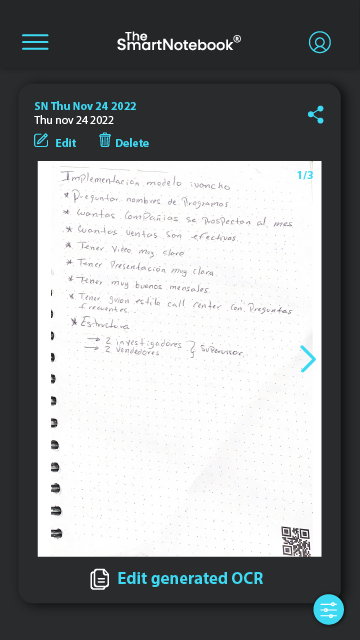 The
SmartNotebook®
SN Thu Nov 24 2022
Thu nov 24 2022
Edit
Delete
1/3
Implementación modelo ivancho
* Preguntar nombres de Programas
* cuantas compañias se prospectan al mes
* cuantas ventas son efectivas
* Tener Video muy claro
* Tener Presentación muy clara
* Tener muy buenos mensajes
* Tener guion estilo call center con preguntas
frecuentes.
* Estructura
→ 2 investigadores } Supervisor
→ 2 vendedores
Edit generated OCR